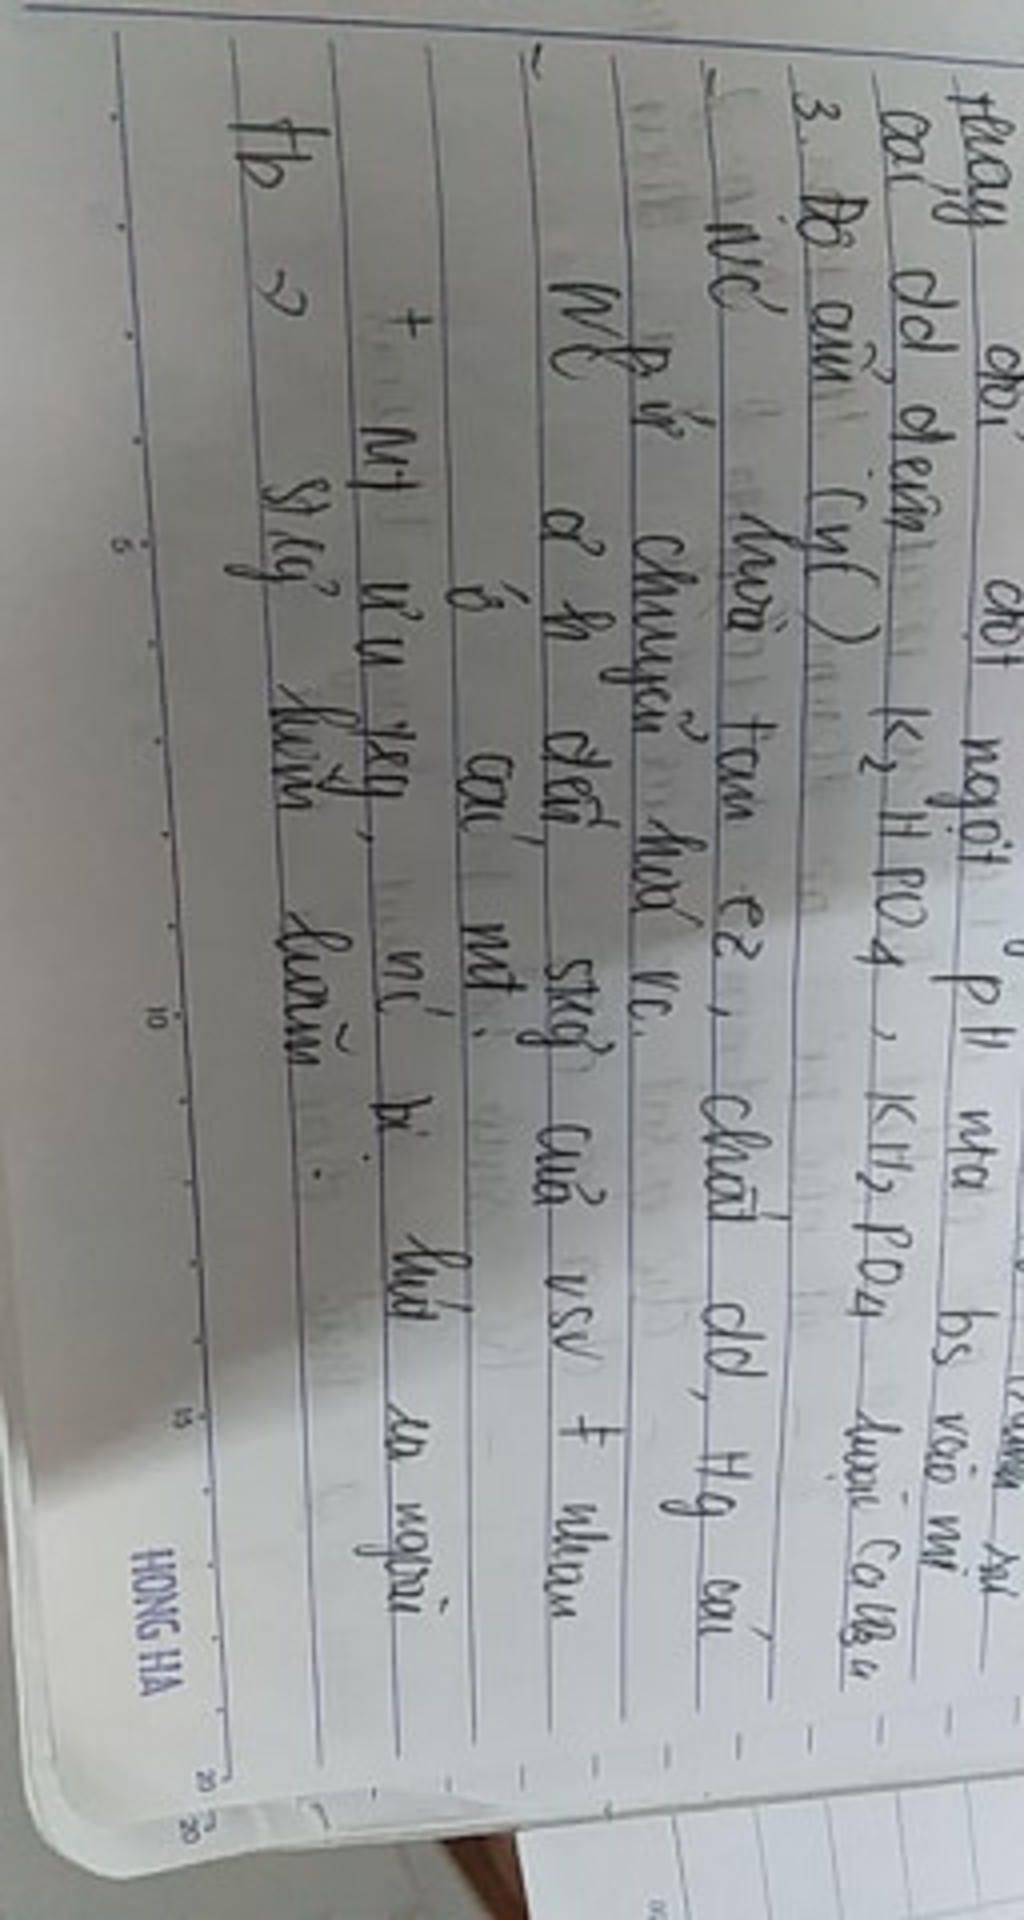 thay đổi đột ngột pH nta bs vào mt
các dd đệm K2HPO4, KH2PO4 hoặc CaCO3
3. Độ ẩm (nc)
- nc hòa tan ez, chất dd, Hg các
pứ chuyển hoá vc.
- nc a h đến stkq của vsv ≠ nhau
ở các mt.
+ Mt ưu trg, nc bị hút ra ngoài
tb → st kg
HONG HA
5 10 15 20
20